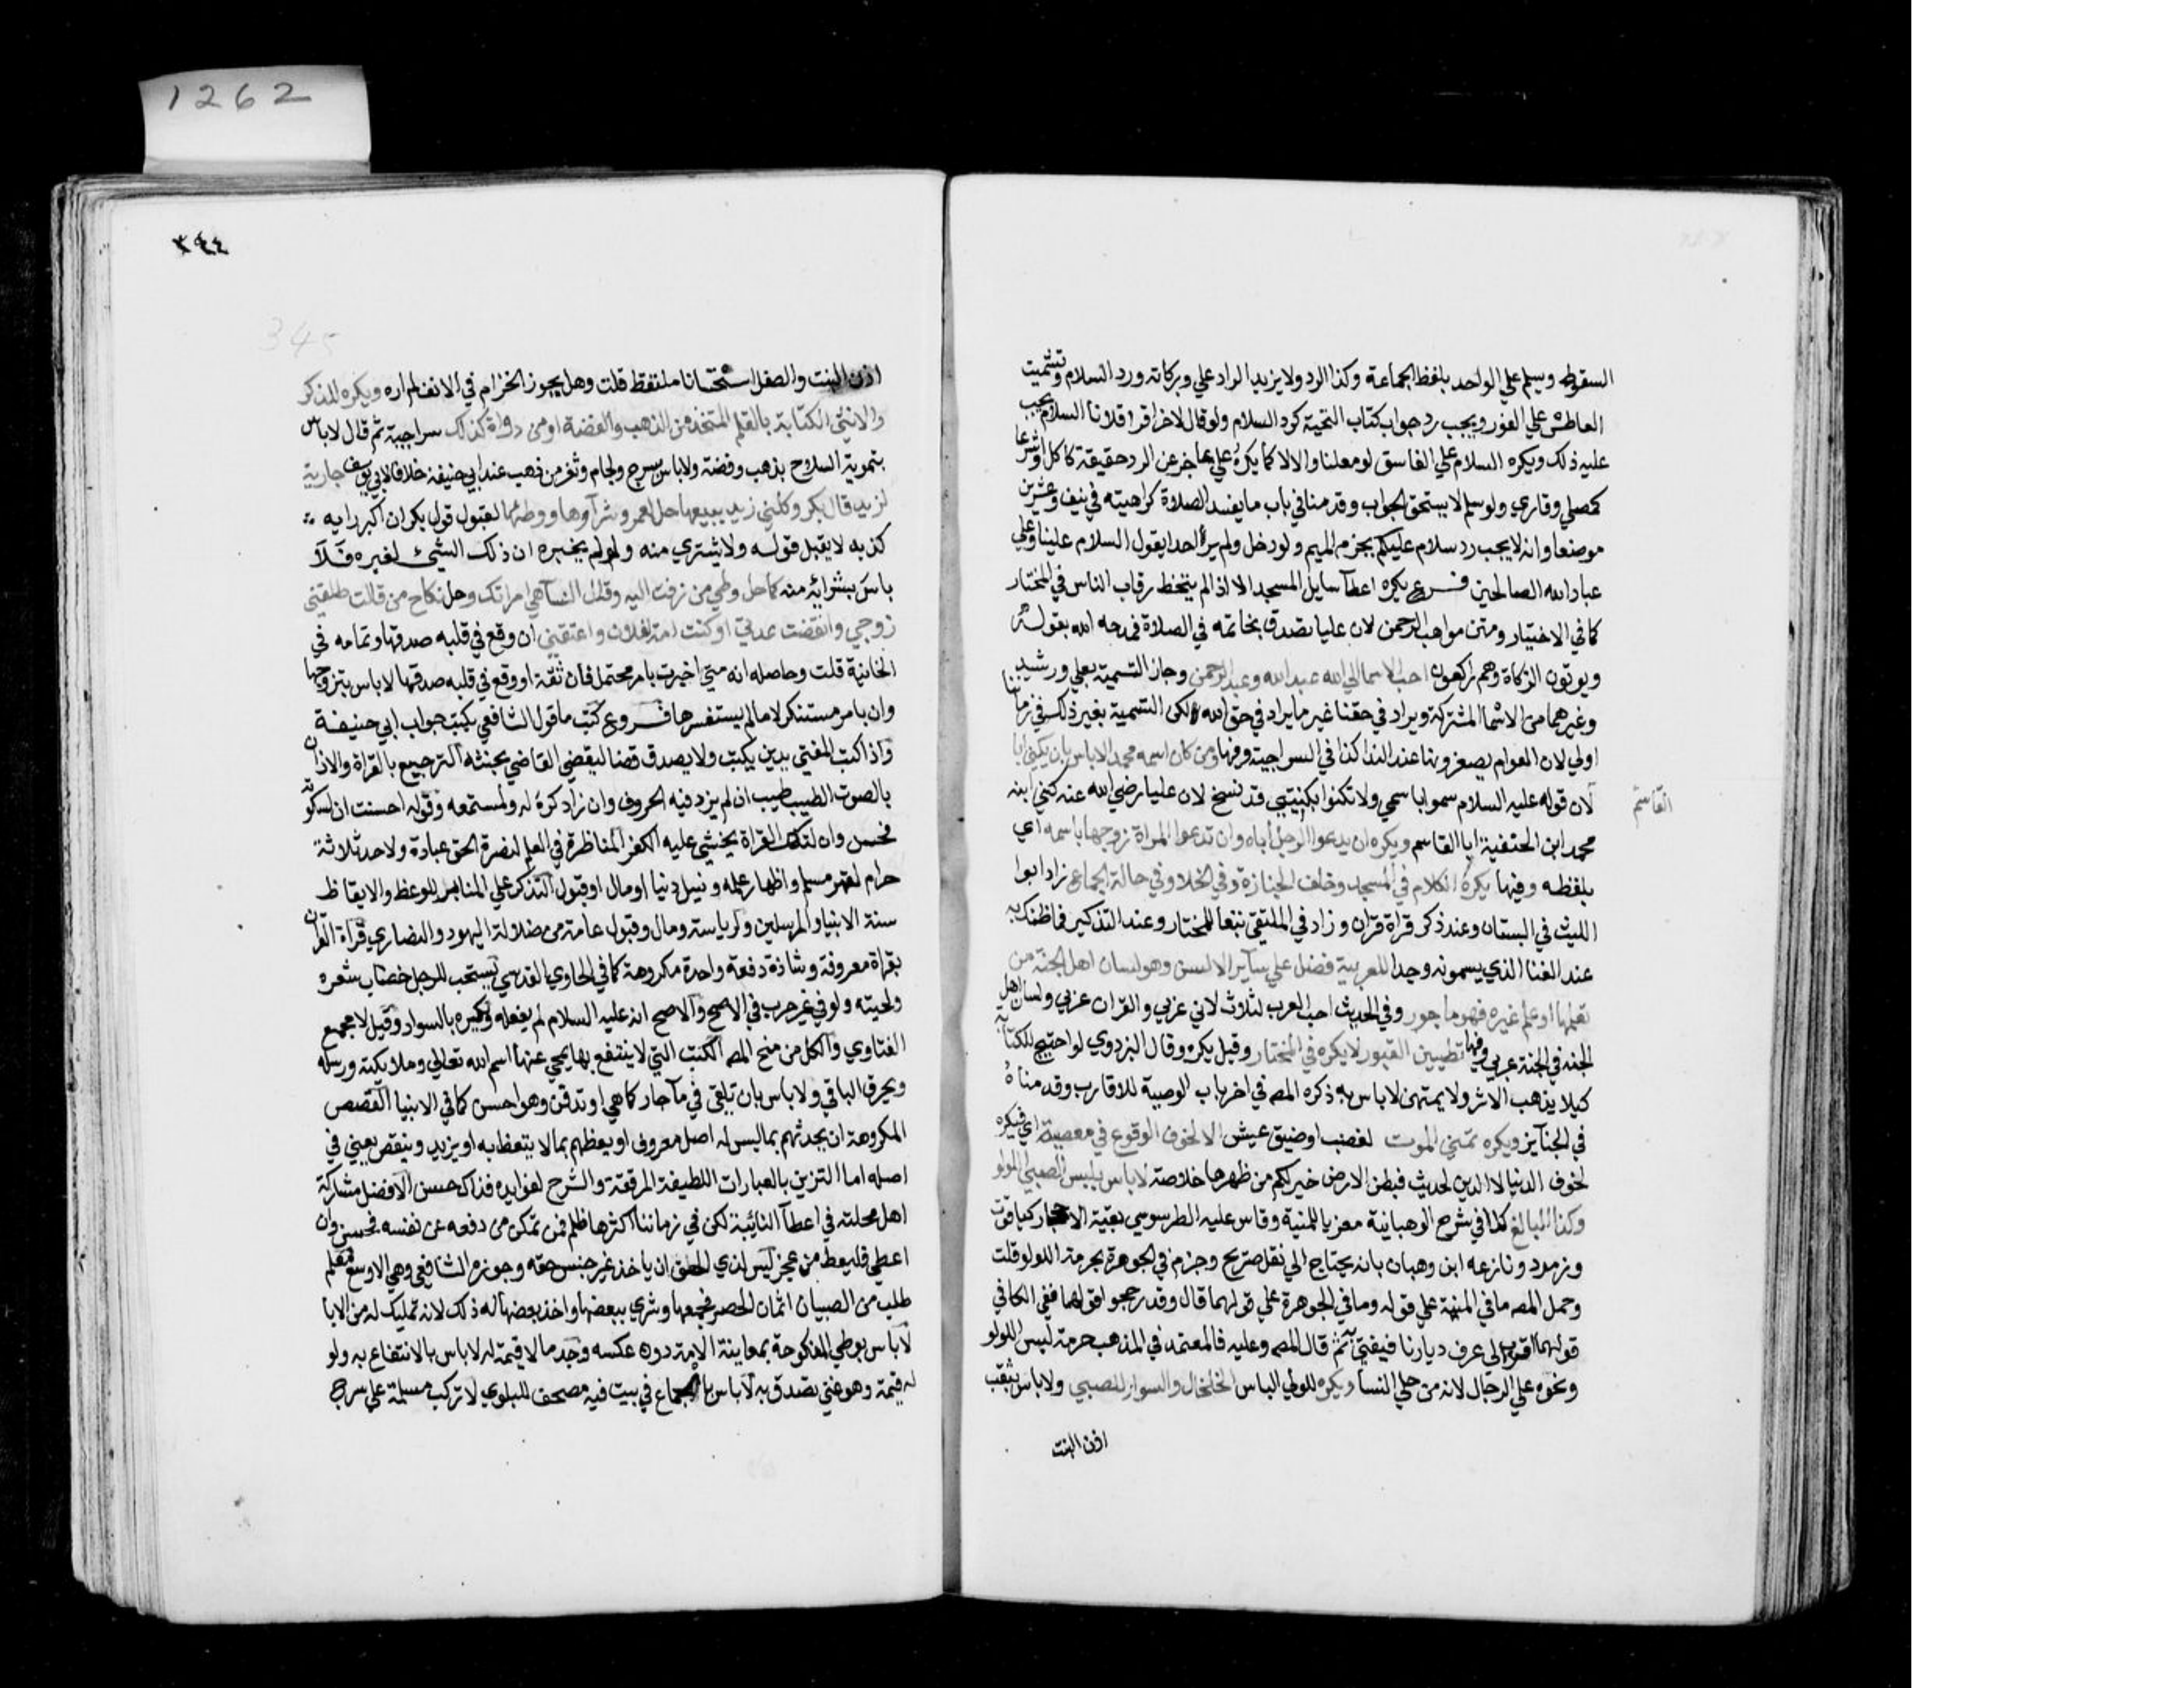 السقوط ويسلم علي الواحد بلفظ الجماعة وكذا الرد ولا يزيد الراد علي وبركاته ورد السلام وتشميت
العاطس علي الفور ويجب رد جواب كتاب التحية كرد السلام ولو قال لاخر اقرا فلانا السلام يجب
عليه ذلك ويكره السلام علي الفاسق لو معلنا والا لا كما يكره علي عاجز عن الرد حقيقة كاكل او شرعا
كمصلي وقاري ولو سلم لا يستحق الجواب وقدمنا في باب ما يفسد الصلاة كراهيته في نيف وعشرين
موضعا وانه لا يجب رد سلام عليكم بجزم الميم ولو دخل ولم ير احدا يقول السلام علينا وعلي
عباد الله الصالحين فرع يكره اعطآ سايل المسجد الا اذا لم يتخط رقاب الناس في المختار
كما في الاختيار ومتن مواهب الرحمن لان عليا تصدق بخاتمه في الصلاة فمدحه الله بقوله
ويوتون الزكاة وهم راكعون احب الاسما الي الله عبد الله وعبد الرحمن وجاز التسمية بعلي ورشيد
وغيرهما من الاسما المشتركة ويراد في حقنا غير ما يراد في حق الله لكن التسمية بغير ذلك في زماننا
اولي لان العوام يصغرونها عند الندا كذا في السراجية وفيها ومن كان اسمه محمد لا باس بان يكني ابا
القاسم
لان قوله عليه السلام سموا باسمي ولا تكنوا بكنيتي قد نسخ لان عليا رضي الله عنه كني ابنه
محمد ابن الحنفية ابا القاسم ويكره ان يدعوا الرجل اباه وان تدعوا المراة زوجها باسمه اي
بلفظه وفيها يكره الكلام في المسجد وخلف الجنازة وفي الخلا وفي حالة الجماع زاد ابوا
الليث في البستان وعند ذكر قراة قران وزاد في الملتقي تبعا للمختار وعند التذكير فما ظنك به
عند الغنا الذي يسمونه وجدا للعربية فضل علي ساير الالسن وهو لسان اهل الجنة من
تعلمها او علم غيره فهو ماجور وفي الحديث احب العرب لثلاث لاني عربي والقران عربي ولسان اهل
الجنه في الجنة عربي وفيها تطيين القبور لا يكره في المختار وقيل يكره وقال البزدوي لو احتيج للكتابة
كيلا يذهب الاثر ولا يمتهن لا باس به ذكره المصه في اخر باب الوصية للاقارب وقدمناه
في الجنآيز ويكره تمني الموت لغضب او ضيق عيش الا لخوف الوقوع في معصية اي فيكره
لخوف الدنيا لا الدين لحديث فبطن الارض خير لكم من ظهرها خلاصة لا باس بلبس الصبي اللولو
وكذا البالغ كذا في شرح الوهبانية معزيا للمنية وقاس عليه الطرسوسي بقية الاحجار كياقوت
وزمرد ونازعه ابن وهبان بانه يحتاج الي نقل صريح وجزم في الجوهرة بحرمة اللولو قلت
وحمل المصه ما في المنية علي قوله وما في الجوهرة علي قولهما قال وقد رجحوا قولهما ففي الكافي
قولهما اقرب الى عرف ديارنا فيفتي به ثم قال المصه وعليه فالمعتمد في المذهب حرمة لبس اللولو
ونحوه علي الرجال لانه من حلي النسآ ويكره للولي الباس الخلخال والسوار للصبي ولا باس بثقب
اذن البنت
٣٤٤
345
اذن البنت والطفل استحسانا ملتقط قلت وهل يجوز الخزام في الانف لم اره ويكره للذكر
والانثي الكتابة بالقلم المتخذ من الذهب والفضة او من دواة كذلك سراجية ثم قال لا باس
بتموية السلاح بذهب وفضة ولا باس بسرج ولجام وثفر من ذهب عند ابي حنيفة خلافا لابي يوسف جارية
لزيد قال بكر وكلني زيد ببيعها حل لعمرو شرآوها ووطئها لقبول قول بكر ان اكبر رايه
كذبه لا يقبل قوله ولا يشتري منه ولو لم يخبره ان ذلك الشيئ لغيره فلا
باس بشرائه منه كما حل وطي من زفت اليه وقلن النسآ هي امراتك وحل نكاح من قالت طلقني
زوجي وانقضت عدتي او كنت امة لفلان واعتقني ان وقع في قلبه صدقها وتمامه في
الخانية قلت وحاصله انه متي اخبرت بامر محتمل فان ثقة او وقع في قلبه صدقها لا باس بتزوجها
وان بامر مستنكر لا ما لم يستفسرها فروع كتب ما قول الشافعي يكتب جواب ابي حنيفة
واذا كتب المفتي يدين يكتب ولا يصدق قضا ليقضي القاضي بحنثه الترجيع بالقراة والاذان
بالصوت الطيب طيب ان لم يزد فيه الحروف وان زاد كره له ولمستمعه وقوله احسنت ان لسكوته
فحسن وان لتلك القراة يخشي عليه الكفر المناظرة في العلم لنصرة الحق عبادة ولاحد ثلاثة
حرام لقهر مسلم واظهار علمه ونيل دنيا او مال او قبول التذكر علي المنابر للوعظ والايقاظ
سنة الانبيا والمرسلين ولرياسة ومال وقبول عامة من ضلالة اليهود والنصاري قراة القران
بقراة معروفة وشاذة دفعة واحدة مكروهة كما في الحاوي القدسي يستحب للرجل خضاب شعره
ولحيته ولو في غير حرب في الاصح والاصح انه عليه السلام لم يفعله ويكره بالسواد وقيل لا مجمع
الفتاوي والكل من منح المصه الكتب التي لا ينتفع بها يمحي عنها اسم الله تعالي وملائكته ورسله
ويحرق الباقي ولا باس بان تلقي في مآ جار كما هي او تدفن وهو احسن كما في الانبيا القصص
المكروهة ان يحدثهم بما ليس له اصل معروف او يعظهم بما لا يتعظ به او يزيد وينقص يعني في
اصله اما التزين بالعبارات اللطيفة المرققة والشرح لفوايده فذاك حسن الافضل مشاركة
اهل محلته في اعطآ النائبة لكن في زماننا اكثرها ظلم فمن تمكن من دفعه عن نفسه فحسن وان
اعطي فليعط من عجز ليس لذي الحق ان ياخذ غير جنس حقه وجوزه الشافعي وهي الاوسع معلم
طلب من الصبيان اثمان الحصر فجمعها وشري ببعضها واخذ بعضها له ذلك لانه تمليك له من الابا
لا باس بوطي المنكوحة بمعاينة الامة دون عكسه وجد ما لا قيمة له لا باس بالانتفاع به ولو
له قيمة وهو غني تصدق به لا باس بالجماع في بيت فيه مصحف للبلوي لا تركب مسلمة علي سرج
1262